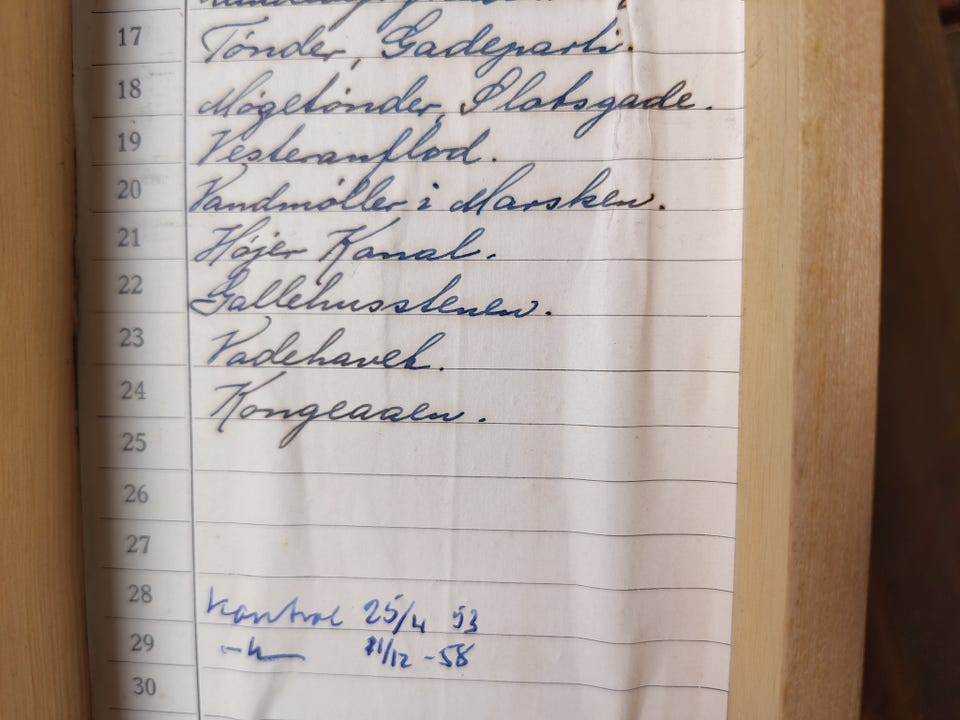 17 Tønder, Gadeparti.
18 Møgetønder, Slotsgade.
19 Vesteranflod.
20 Vandmøller i Marsken.
21 Højer Kanal.
22 Gallehusstenen.
23 Vadehavet.
24 Kongeaaen.
25
26
27
28 Kontrol 25/4 53
29 -"- /12 -58
30